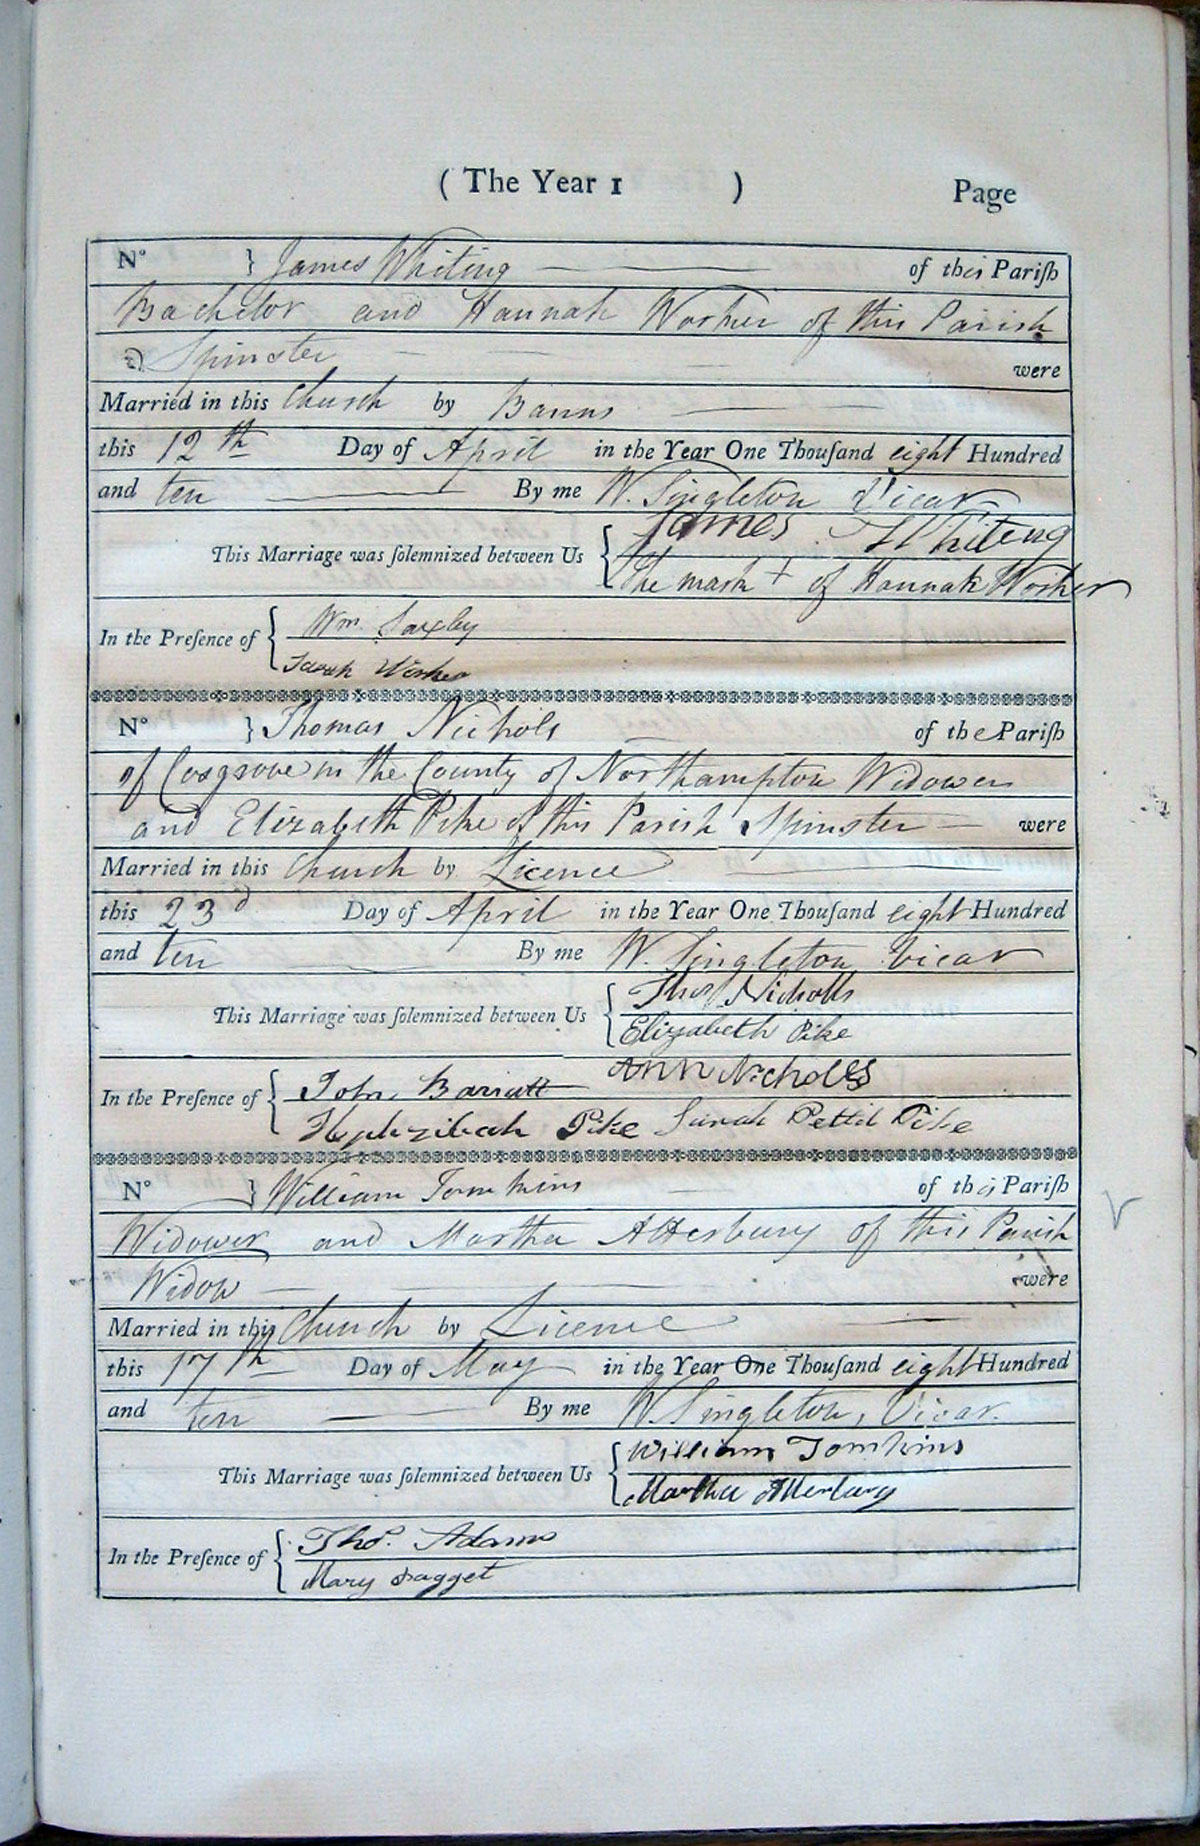 ( The Year 1 ) Page
No } James Whiting of this Pariſh
Bachelor and Hannah Worker of this Parish
Spinster were
Married in this Church by Banns
this 12th Day of April in the Year One Thouſand eight Hundred
and ten By me W. Singleton Vicar
This Marriage was ſolemnized between Us { James Whiting
The mark + of Hannah Worker
In the Preſence of { Wm. Saxby
Sarah Worker
No } Thomas Nichols of the Pariſh
of Cosgrove in the County of Northampton Widower
and Elizabeth Pike of this Parish Spinster were
Married in this Church by Licence
this 23d Day of April in the Year One Thouſand eight Hundred
and ten By me W. Singleton Vicar
This Marriage was ſolemnized between Us { Thos Nicholls
Elizabeth Pike
Ann Nicholls
In the Preſence of { John Barratt
Hephzibah Pike Sarah Pettit Pike
No } William Tomkins of this Pariſh
Widower and Martha Atterbury of this Parish
Widow were
Married in this Church by Licence
this 17th Day of May in the Year One Thouſand eight Hundred
and ten By me W. Singleton, Vicar.
This Marriage was ſolemnized between Us { William Tomkins
Martha Atterbury
In the Preſence of { Thos. Adams
Mary Dagget